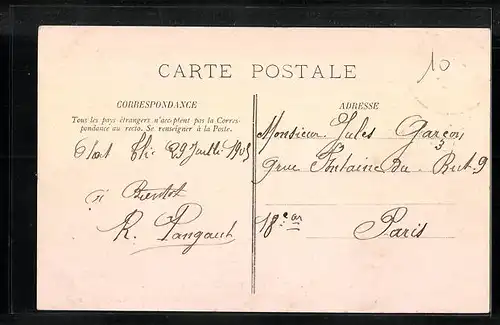 10
CARTE POSTALE
CORRESPONDANCE
Tous les pays étrangers n'acceptent pas la Corres-
pondance au recto. Se renseigner à la Poste.
29 Juillet 1905
à Bientôt
R.
ADRESSE
Monsieur Jules Garçon
3
rue Fontaine du But 9
18e ar
Paris